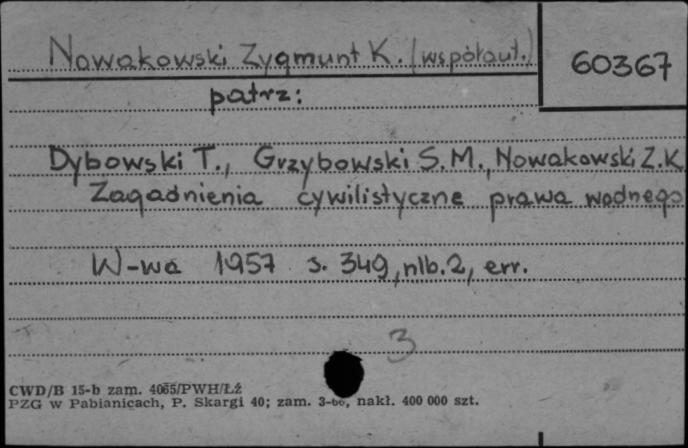 Nowakowski Zygmunt K. (współaut.)
60367
patrz:
Dybowski T., Grzybowski S.M., Nowakowski Z.K
Zagadnienia cywilistyczne prawa wodnego
W-wa 1957 s. 349, nlb. 2, err.
3
CWD/B 15-b zam. 4065/PWH/Łź
PZG w Pabianicach, P. Skargi 40; zam. 3-66, nakł. 400 000 szt.